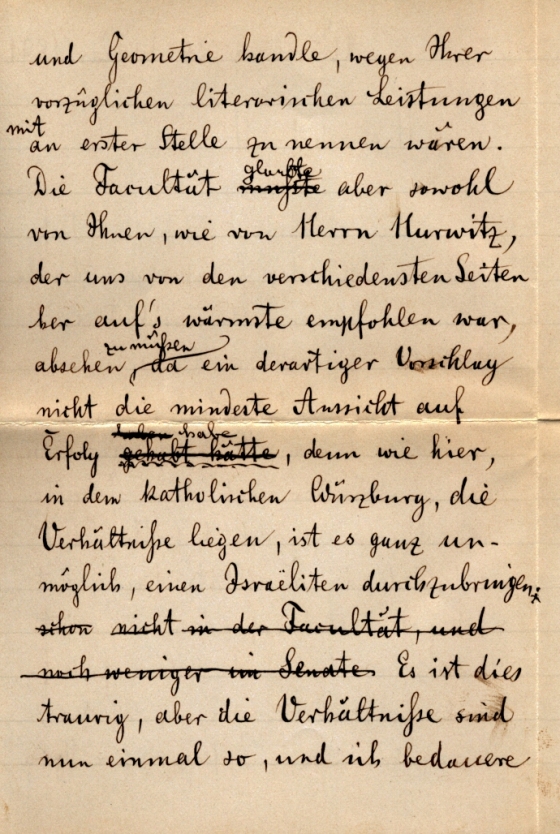 und Geometrie handle, wegen Ihrer
vorzüglichen literarischen Leistungen
mit
an erster Stelle zu nennen wären.
glaubte
Die Facultät musste aber sowohl
von Ihnen, wie von Herrn Hurwitz,
der uns von den verschiedensten Seiten
her auf's wärmste empfohlen war,
zu müßen
absehen, da ein derartiger Vorschlag
nicht die mindeste Aussicht auf
haben habe
Erfolg gehabt hätte, denn wie hier,
in dem katholischen Würzburg, die
Verhältniße liegen, ist es ganz un-
möglich, einen Israëliten durchzubringen;
schon nicht in der Facultät, und
noch weniger im Senate. Es ist dies
traurig, aber die Verhältniße sind
nun einmal so, und ich bedauere